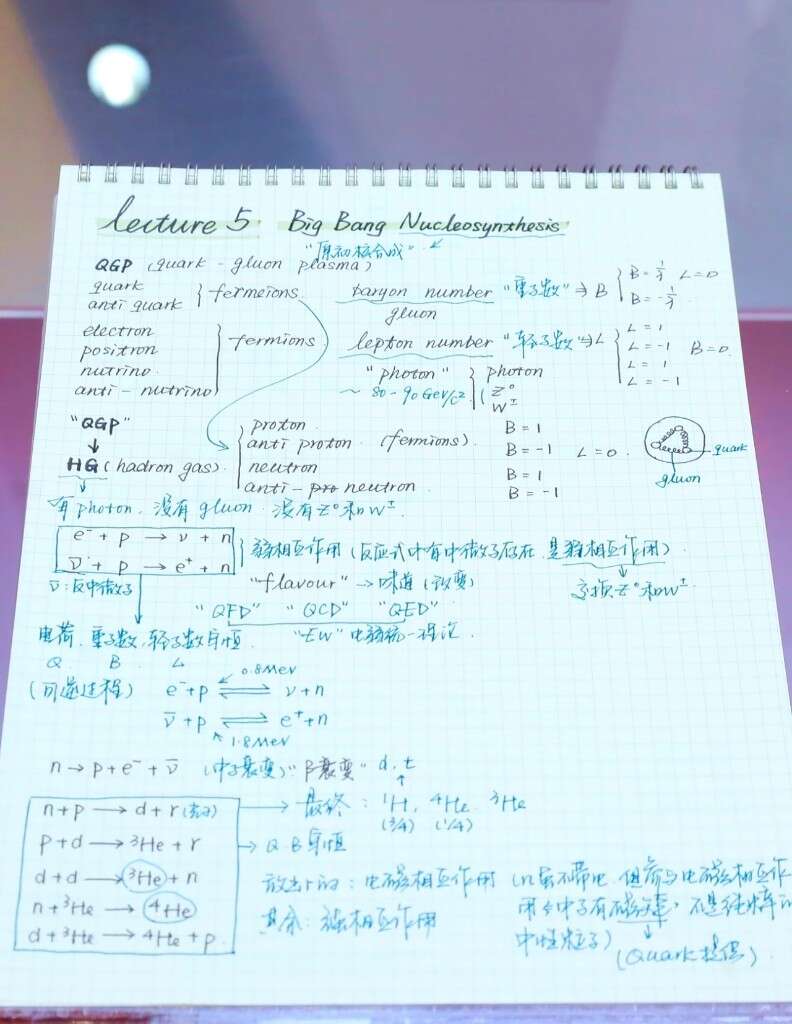 lecture 5. Big Bang Nucleosynthesis
"原初核合成"
QGP (quark - gluon plasma)
quark
anti quark } fermeions.
baryon number "重子数" ⇒ B { B = 1/3 L = 0
B = -1/3
gluon
electron
positron
nutrino
anti - nutrino } fermions
lepton number "轻子数" ⇒ L { L = 1
L = -1
L = 1
L = -1
B = 0.
"photon" { photon
~ 80 - 90 GeV/c² ( Z⁰
W±
"QGP"
↓
HG (hadron gas).
proton B = 1
anti proton. (fermions). B = -1 L = 0.
neutron B = 1
anti - pro neutron. B = -1
quark
gluon
有 photon. 没有 gluon. 没有 Z⁰ 和 W±.
e⁻ + p → ν + n
ν̄ + p → e⁺ + n
} 弱相互作用 (反应式中有中微子存在, 是弱相互作用)
交换 Z⁰ 和 W±
ν̄: 反中微子
"flavour" → 味道 (改变)
"QFD" "QCD" "QED"
"EW" 电弱统一理论.
电荷. 重子数, 轻子数守恒
Q B L
(可逆过程)
0.8 MeV
e⁻+p ⇌ ν+n
ν̄+p ⇌ e⁺+n
1.8 MeV
n → p + e⁻ + ν̄ (中子衰变) "β衰变" d, t
n + p → d + r → 最终: ¹H, ⁴He, ³He
(3/4) (1/4)
p + d → ³He + r → Q B守恒
d + d → ³He + n
n + ³He → ⁴He
d + ³He → ⁴He + p.
放出 r 的: 电磁相互作用 (n虽不带电, 但参与电磁相互作
用 中子有磁矩, 不是纯粹的
中性粒子)
(Quark提供)
其余: 强相互作用